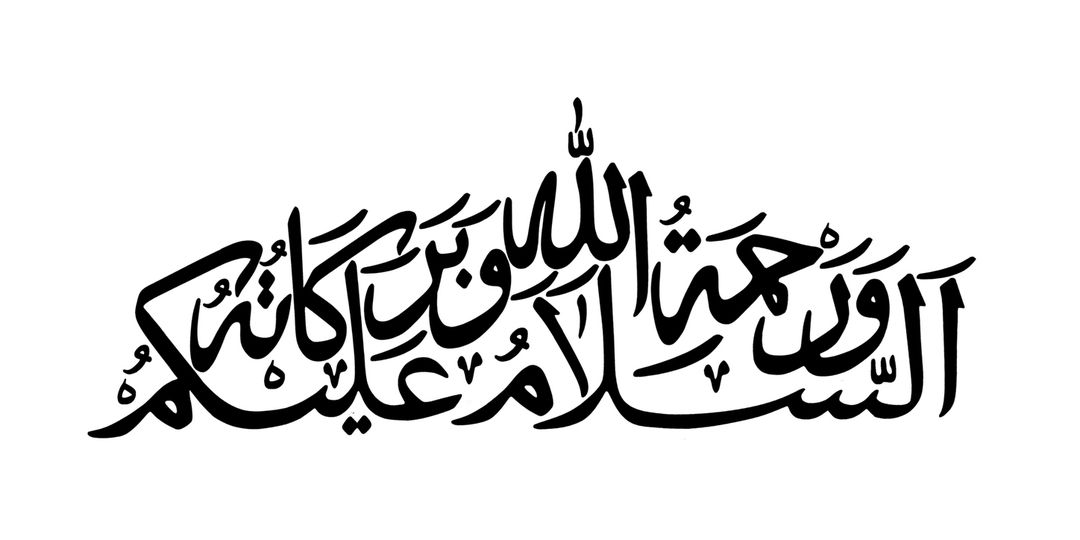 السَّلَامُ عَلَيْكُمُ
وَرَحْمَةُ اللّٰهِ وَبَرَكَاتُهُ